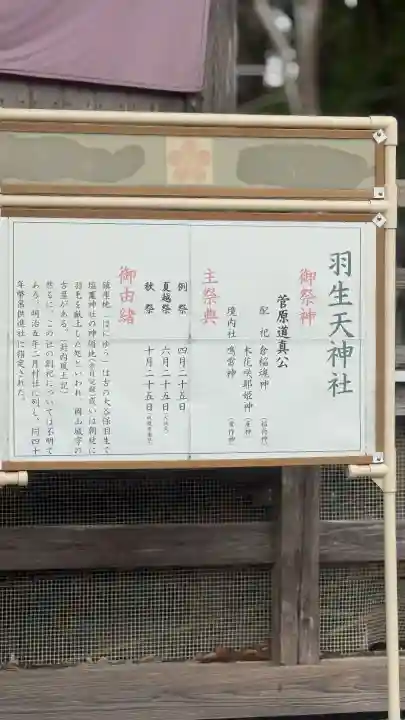 羽生天神社
御祭神
菅原道真公
配祀 倉稲魂神（稲荷神）
木花咲耶姫神（産神）
境内社 鳴雷神（農作神）
主祭典
例祭 四月二十五日
夏越祭 六月二十五日
秋祭 十月二十五日
御由緒
鎮座地（はにゅう）は古の大谷保羽生で
塩竈神社の神領地
或いは朝廷に
羽毛を献上した処といわれ、岡山城字の
古墨がある。（封内風土記）
然るに、この社の創祀については不明で
ある。明治五年二月村社に列し、同四十
年幣帛供進社に指定された。